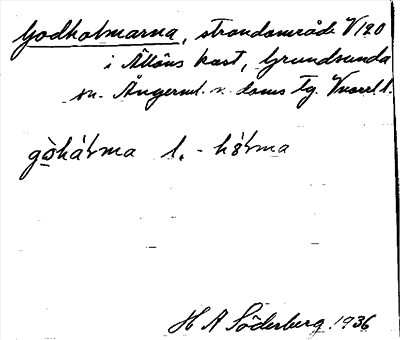 Godholmarna, strandområde V 120
i Ållöns kast, Grundsunda
sn. Ångerml. n. doms tg. Vnorrl. l.
gò̠hálma l. - hö́lma
H A Söderberg 1936